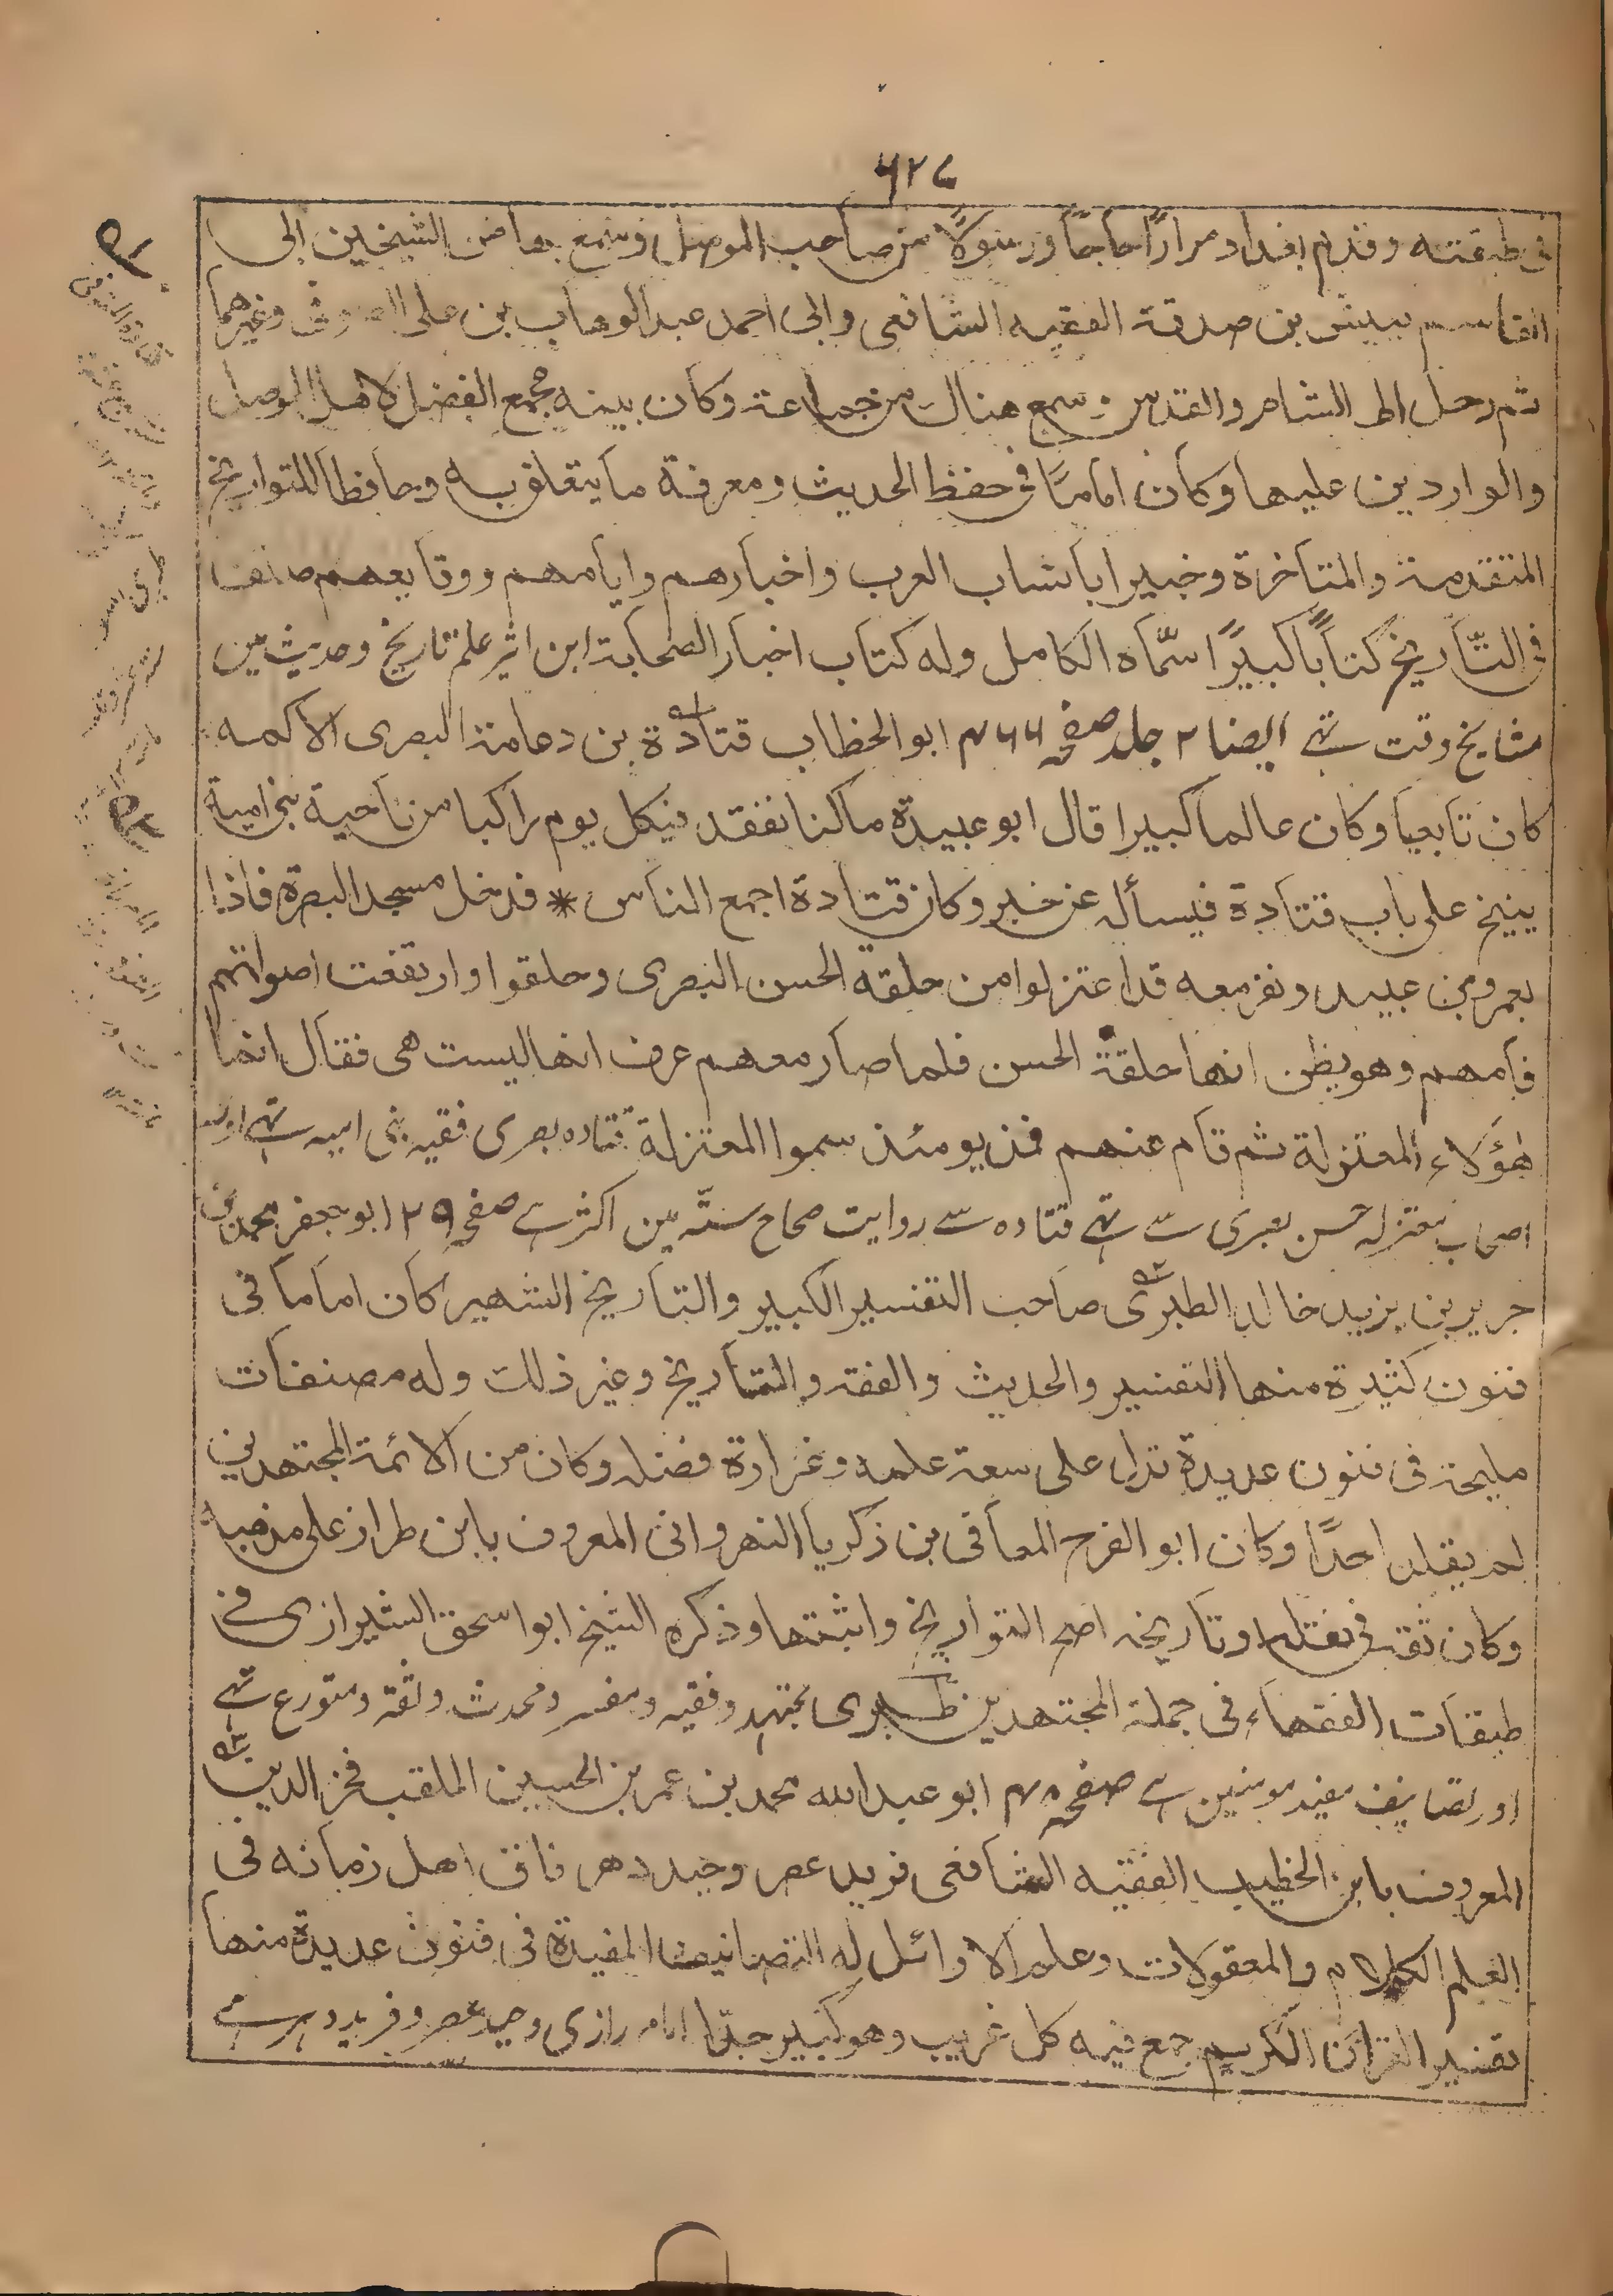 ۶۲۷
فی طبقته وقدم بغداد مرارًا حاجاً ورسولًا من صاحب الموصل وسمع بها من الشیخین ابی
القاسم یعیش بن صدقة الفقیه الشافعی وابی احمد عبد الوهاب بن علی الصوفی وغیرهما
ثم رحل الی الشام والقدس وسمع هناك من جماعة وكان بیته مجمع الفضل لاهل الموصل
والواردین علیها وكان اماماً فی حفظ الحدیث ومعرفة ما یتعلق به وحافظا للتواریخ
المتقدمة والمتأخرة وخبیرا بانساب العرب واخبارهم وایامهم ووقایعهم صنف
فی التّاریخ كتاباً كبیرًا سمّاه الكامل وله كتاب اخبار الصحابة ابن اثیر علم تاریخ وحدیث مین
مشایخ وقت تہے ایضا ۲ جلد صفحہ ۴۶۶ م ابو الخطاب قتادة بن دعامة البصری الاكمه
كان تابعیا وكان عالما كبیرا قال ابو عبیدة ما كنا نفقد فی كل یوم راكبا من ناحیة بنی امیة
ینیخ علی باب قتادة فیسأله عن خبر وكان قتادة اجمع الناس * فدخل مسجد البصرة فاذا
بعمرو بن عبید ونفر معه قد اعتزلوا من حلقة الحسن البصری وحلقوا وارتفعت اصواتهم
فأمهم وهو یظن انها حلقة الحسن فلما صار معهم عرف انها لیست هی فقال انما
هؤلاء المعتزلة ثم قام عنهم فمن یومئذ سموا المعتزلة قتاده بصری فقیه بنی امیه تہے اور
اصحاب معتزلہ حسن بصری سے تہے قتاده سے روایت صحاح ستّہ مین اکثر ہے صفحہ ۲۵۹ ابو جعفر محمد بن
جریر بن یزید خالد الطبری صاحب التفسیر الكبیر والتاریخ الشهیر كان اماما فی
فنون كثیرة منها التفسیر والحدیث والفقه والتاریخ وغیر ذلك وله مصنفات
ملیحة فی فنون عدیدة تدل علی سعة علمه وغزارة فضله وكان من الائمة المجتهدین
لم یقلد احدًا وكان ابو الفرج المعافی بن زكریا النهروانی المعروف بابن طراز علی مذهبه
وكان ثقة فی نقله وتاریخه اصح التواریخ واثبتها وذكره الشیخ ابو اسحق الشیرازی فی
طبقات الفقهاء فی جملة المجتهدین طبری مجتہد وفقیہ ومفسر ومحدث وثقہ ومتورع تہے
اور تصانیف مفید مومنین ہے صفحہ ابو عبد الله محمد بن عمر بن الحسین الملقب فخر الدین
المعروف بابن الخطیب الفقیه الشافعی فرید عصر وحید دهر فاق اهل زمانه فی
العلم الكلام والمعقولات وعلم الاوائل له التصانیف المفیدة فی فنون عدیدة منها
تفسیر القرآن الكریم جمع فیه كل غریب وهو كبیر جدّا امام رازی وحید عصر وفرید دہر ہے